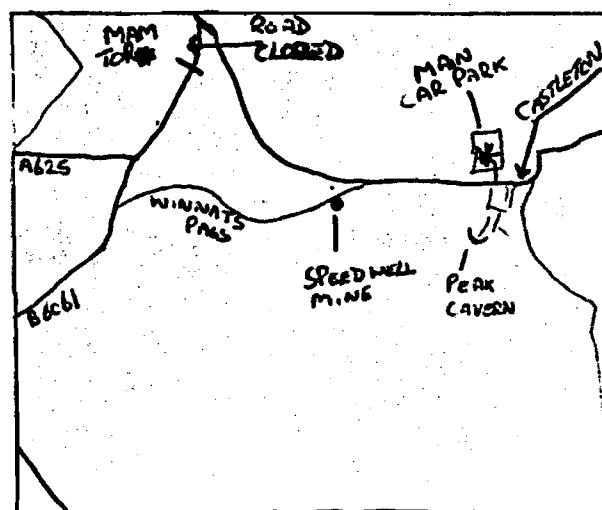 MAM
TOR
ROAD
CLOSED
MAN
CAR PARK
CASTLETON
A625
WINNATS
PASS
SPEEDWELL
MINE
PEAK
CAVERN
B6061